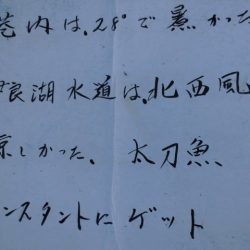 港内は、28°で暑かった
良湖水道は、北西風
涼しかった。 太刀魚
ンスタントに ゲット